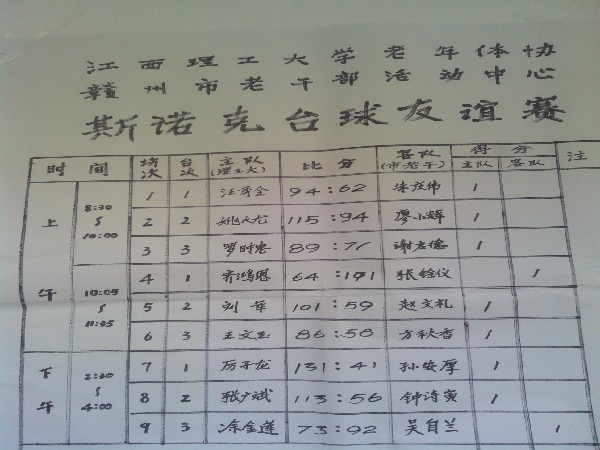 江西理工大学老年体协
赣州市老干部活动中心
斯诺克台球友谊赛
时间 场次 台次 主队(理工大) 比分 客队(市老干) 得分 主队 客队 注
上午 8:30 ~ 10:00
1 1 94:62 1
2 2 115:94 廖小辉 1
3 3 罗时忠 89:71 1
10:05 ~ 11:35
4 1 64:101 1
5 2 刘军 101:59 赵文礼 1
6 3 86:58 方秋香 1
下午 2:30 ~ 4:00
7 1 131:41 孙安厚 1
8 2 张广斌 113:56 钟诗寅 1
9 3 涂金莲 73:92 吴自兰 1